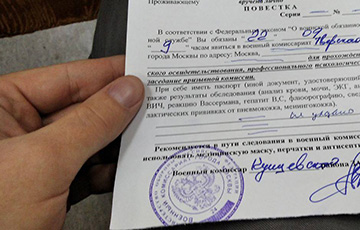 Проживающему
вручает лично
ПОВЕСТКА
Серия
В соответствии с Федеральным законом "О воинской обязанности
ной службе" Вы обязаны "20" 07
"9" часам явиться в военный комиссариат Тверской
города Москвы по адресу: Москва,
для прохождения
ского освидетельствования, профессионального психологического
заседание призывной комиссии.
При себе иметь паспорт (иной документ, удостоверяющий
также результаты обследования (анализ крови, мочи, ЭКГ, ан
ВИЧ, реакцию Вассермана, гепатит В,С, флюорографию, све
лактических прививках от пневмококка, менингококка).
Рекомендуется в пути следования в военный комиссариат
использовать медицинскую маску, перчатки и антисептик
Военный комиссар
ВОЕННЫЙ КОМИССАРИАТ